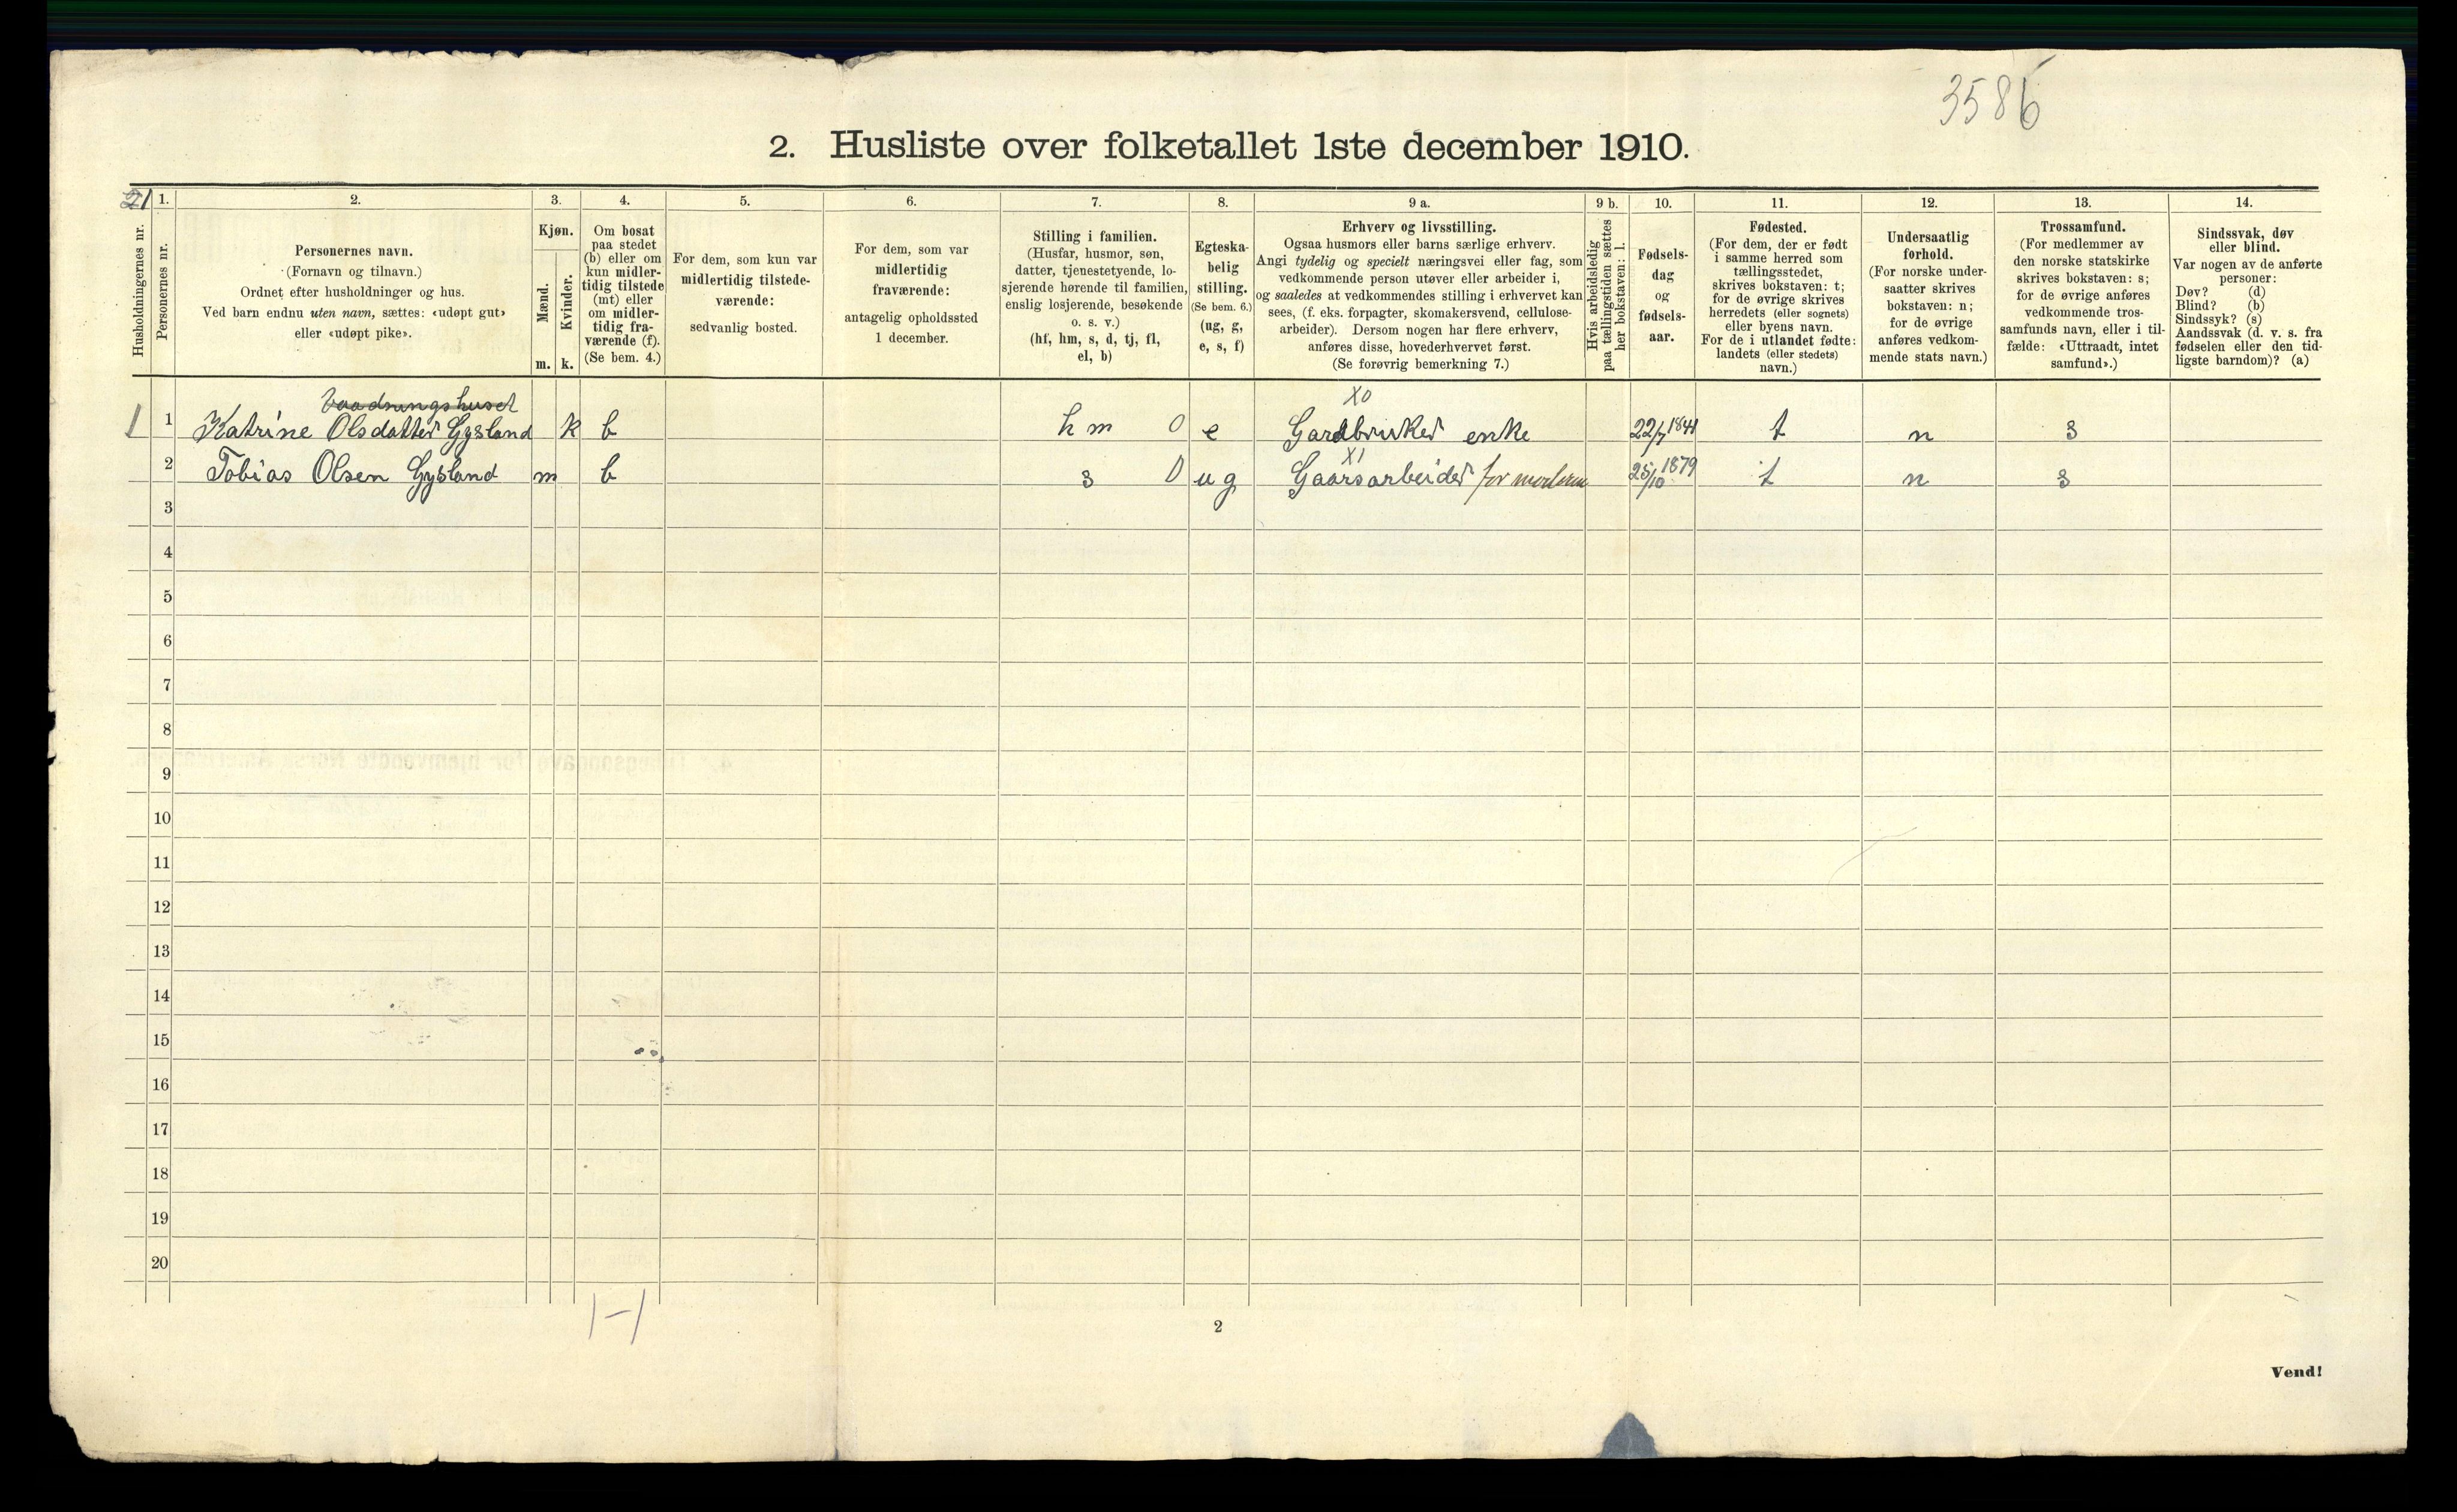 3586
2. Husliste over folketallet 1ste december 1910.
21
1. 2. 3. 4. 5. 6. 7. 8. 9 a. 9 b. 10. 11. 12. 13. 14.
Husholdningernes nr.
Personernes nr.
Personernes navn.
(Fornavn og tilnavn.)
Ordnet efter husholdninger og hus.
Ved barn endnu uten navn, sættes: «udøpt gut»
eller «udøpt pike».
Kjøn.
Mænd.
Kvinder.
m. k.
Om bosat
paa stedet
(b) eller om
kun midler-
tidig tilstede
(mt) eller
om midler-
tidig fra-
værende (f).
(Se bem. 4.)
For dem, som kun var
midlertidig tilstede-
værende:
sedvanlig bosted.
For dem, som var
midlertidig
fraværende:
antagelig opholdssted
1 december.
Stilling i familien.
(Husfar, husmor, søn,
datter, tjenestetyende, lo-
sjerende hørende til familien,
enslig losjerende, besøkende
o. s. v.)
(hf, hm, s, d, tj, fl,
el, b)
Egteska-
belig
stilling.
(Se bem. 6.)
(ug, g,
e, s, f)
Erhverv og livsstilling.
Ogsaa husmors eller barns særlige erhverv.
Angi tydelig og specielt næringsvei eller fag, som
vedkommende person utøver eller arbeider i,
og saaledes at vedkommendes stilling i erhvervet kan
sees, (f. eks. forpagter, skomakersvend, cellulose-
arbeider). Dersom nogen har flere erhverv,
anføres disse, hovederhvervet først.
(Se forøvrig bemerkning 7.)
Hvis arbeidsledig
paa tællingstiden sættes
her bokstaven: l.
Fødsels-
dag
og
fødsels-
aar.
Fødested.
(For dem, der er født
i samme herred som
tællingsstedet,
skrives bokstaven: t;
for de øvrige skrives
herredets (eller sognets)
eller byens navn.
For de i utlandet fødte:
landets (eller stedets)
navn.)
Undersaatlig
forhold.
(For norske under-
saatter skrives
bokstaven: n;
for de øvrige
anføres vedkom-
mende stats navn.)
Trossamfund.
(For medlemmer av
den norske statskirke
skrives bokstaven: s;
for de øvrige anføres
vedkommende tros-
samfunds navn, eller i til-
fælde: «Uttraadt, intet
samfund».)
Sindssvak, døv
eller blind.
Var nogen av de anførte
personer:
Døv? (d)
Blind? (b)
Sindssyk? (s)
Aandssvak (d. v. s. fra
fødselen eller den tid-
ligste barndom)? (a)
Vaadningshuset X0
1 1 Katrine Olsdatter Gysland k b hm 0 e Gardbruker enke 22/7 1841 t n s
X1
2 Tobias Olsen Gysland m b s 0 ug Gaarsarbeider for moderen 25/10 1879 t n s
3
4
5
6
7
8
9
10
11
12
13
14
15
16
17
18
19
20
1-1
2
Vend!